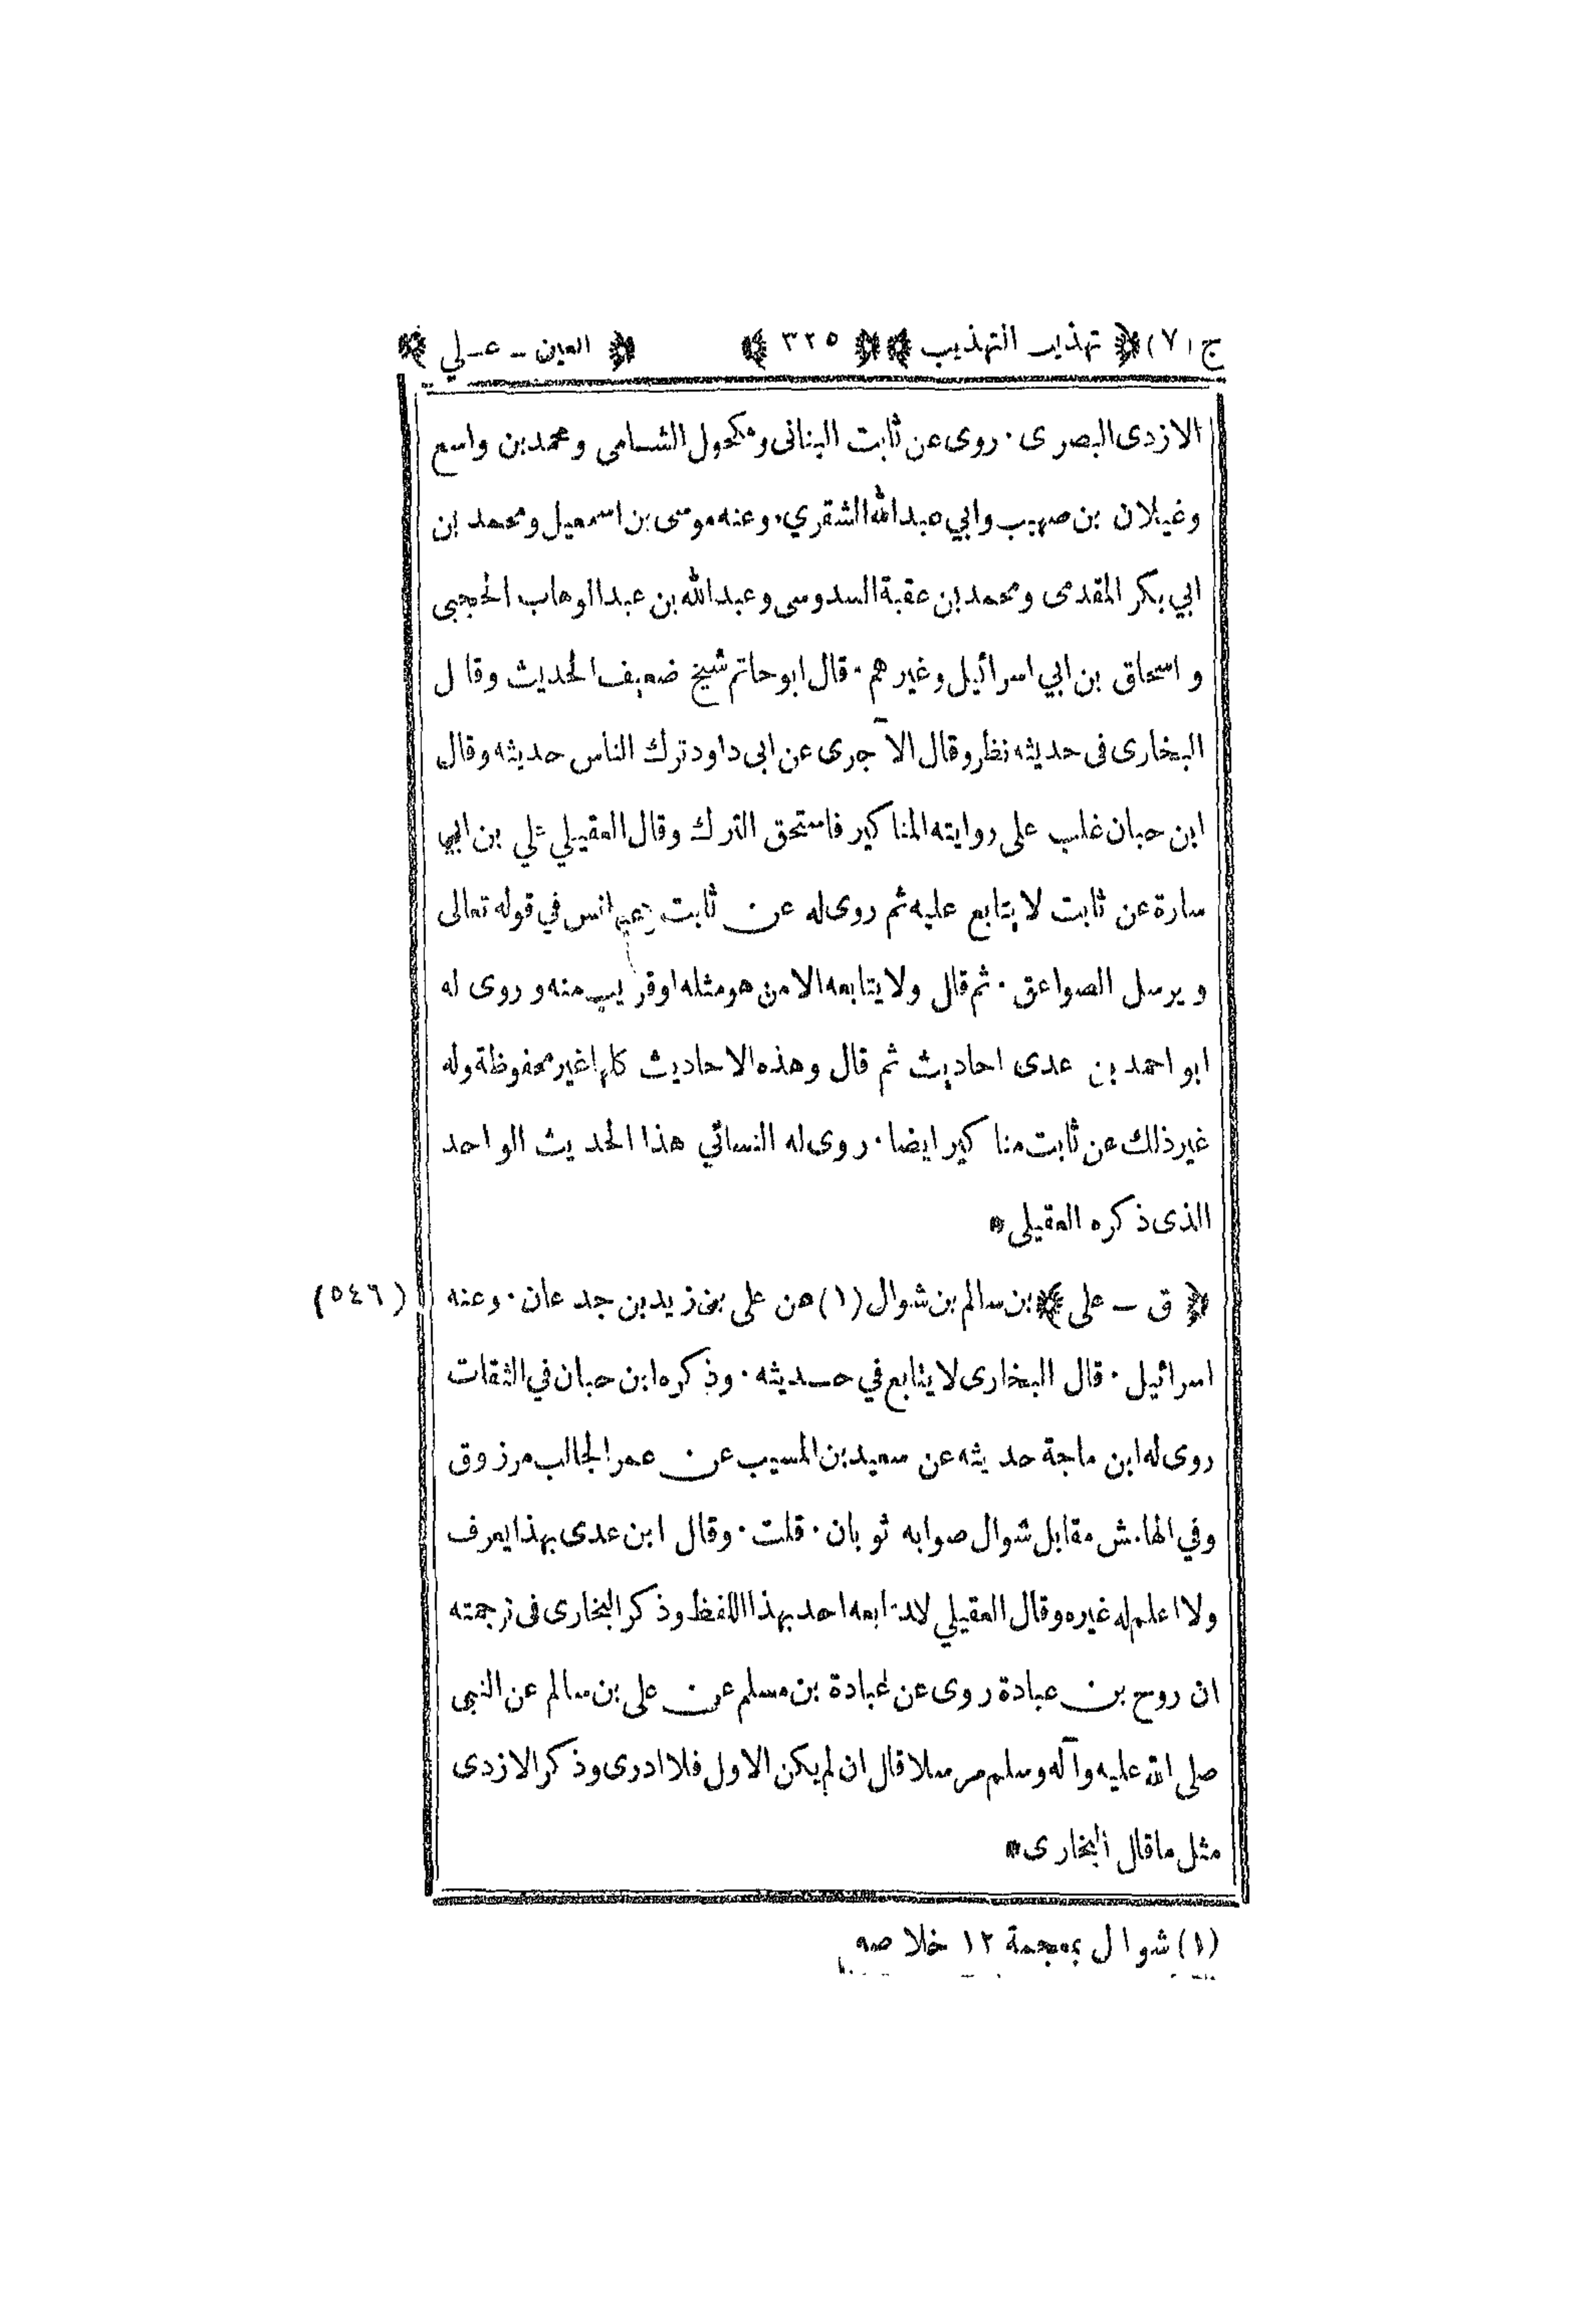 ج (٧) ﴿ تهذيب التهذيب ﴾ ﴿ ٣٢٥ ﴾ ﴿ العين - علي ﴾
الازدى البصرى · روى عن ثابت البنانى ومكحول الشامى ومحمد بن واسع
وغيلان بن صهيب وابي عبد الله الشقري · وعنه موسى بن اسمعيل ومحمد بن
ابي بكر المقدمى ومحمد بن عقبة السدوسى وعبد الله بن عبد الوهاب الحجبى
واسحاق بن ابي اسرائيل وغيرهم · قال ابو حاتم شيخ ضعيف الحديث وقال
البخارى فى حديثه نظر وقال الآجرى عن ابى داود ترك الناس حديثه وقال
ابن حبان غلب على روايته المناكير فاستحق الترك وقال العقيلي علي بن ابي
سارة عن ثابت لا يتابع عليه ثم روى له عن ثابت عن انس في قوله تعالى
ويرسل الصواعق · ثم قال ولا يتابعه الا من هو مثله او قريب منه وروى له
ابو احمد بن عدى احاديث ثم قال وهذه الاحاديث كلها غير محفوظة وله
غير ذلك عن ثابت مناكير ايضا · روى له النسائي هذا الحديث الواحد
الذى ذكره العقيلى *
﴿ ق - على ﴾ بن سالم بن شوال (١) عن على بن زيد بن جدعان · وعنه (٥٤٦)
اسرائيل · قال البخارى لا يتابع في حديثه · وذكره ابن حبان في الثقات
روى له ابن ماجة حديثه عن سعيد بن المسيب عن عمر الجالب مرزوق
وفي الهامش مقابل شوال صوابه ثوبان · قلت · وقال ابن عدى بهذا يعرف
ولا اعلم له غيره وقال العقيلي لا يتابعه احد بهذا اللفظ وذكر البخارى فى ترجمته
ان روح بن عبادة روى عن عبادة بن مسلم عن على بن سالم عن النبى
صلى الله عليه وآله وسلم مرسلا قال ان لم يكن الاول فلا ادرى وذكر الازدى
مثل ما قال البخارى *
(١) شوال بمعجمة ١٢ خلاصه